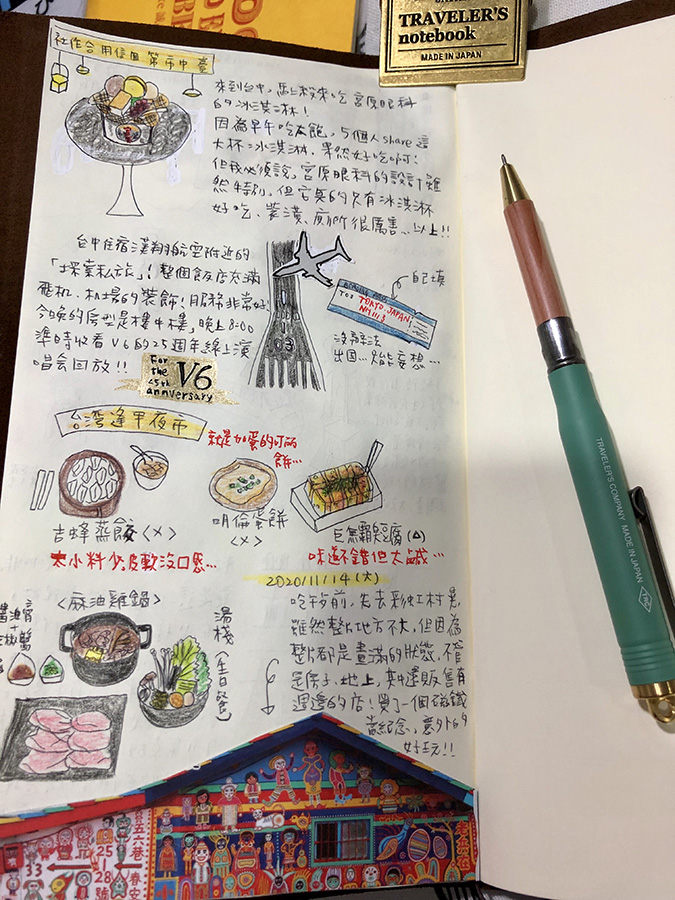 TRAVELER'S
notebook
MADE IN JAPAN
臺中市第四信用合作社
來到台中，馬上就來吃宮原眼科
的冰淇淋！
因為早午吃太飽，5個人share這
大杯冰淇淋，果然好吃啊！
但我必須說，宮原眼科的設計雖
然特別，但它真的只有冰淇淋
好吃、裝潢、廁所很厲害…以上!!
台中住宿漢翔航空附近的
「探索私旅」！整個飯店充滿
飛机、机場的裝飾！服務非常好，
今晚的房型是樓中樓，晚上8:00
準時收看V6的25週年線上演
唱会回放!!
03
自己填
TO: TOKYO, JAPAN
沒辦法
出国…只能妄想…
For
the
25th
anniversary
V6
台湾逢甲夜市
就是加蛋的叮叮
餅…
吉蜂蒸餃<×>
太小料少,皮軟沒口感…
明倫蛋餅
<×>
巨無霸臭豆腐(△)
味道不錯但太鹹…
2020/11/14(六)
<麻油雞鍋>
醬油膏
+
辣椒醬
湯棧(生日餐)
吃午飯前，先去彩虹村晃，
雖然整片地方不大，但因為
整片都是畫滿的狀態，不管
是房子、地上，其中還販售有
週邊的店！買了一個磁鐵
當紀念，意外的
好玩!!
五六巷
25
28
號
33
春安
TRAVELER'S COMPANY MADE IN JAPAN
TRC